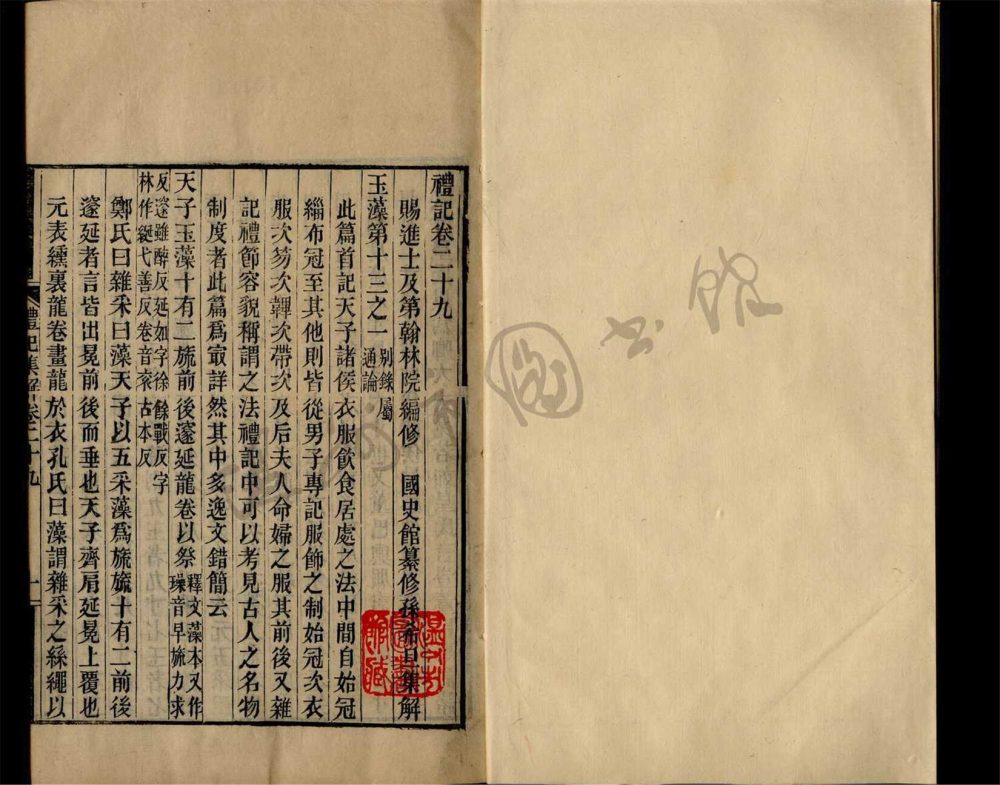 禮記卷二十九
賜進士及第翰林院編修 國史館纂修孫希旦集解
玉藻第十三之一 別錄屬通論
此篇首記天子諸侯衣服飲食居處之法中間自始冠
緇布冠至其他則皆從男子專記服飾之制始冠次衣
服次笏次鞸次帶次及后夫人命婦之服其前後又雜
記禮節容貌稱謂之法禮記中可以考見古人之名物
制度者此篇爲㝡詳然其中多逸文錯簡云
天子玉藻十有二旒前後邃延龍卷以祭 釋文藻本又作璪音早旒力求
反邃雖醉反延如字徐餘戰反字林作綖弋善反卷音衮古本反
鄭氏曰雜采曰藻天子以五采藻爲旒旒十有二前後
邃延者言皆出冕前後而垂也天子齊肩延冕上覆也
元表纁裏龍卷畫龍於衣孔氏曰藻謂雜采之絲繩以
禮記集解卷二十九
一
圖書館